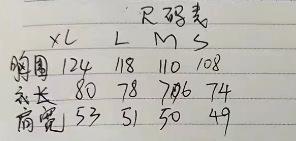 尺码表
XL L M S
胸围 124 118 110 108
衣长 80 78 76 74
肩宽 53 51 50 49